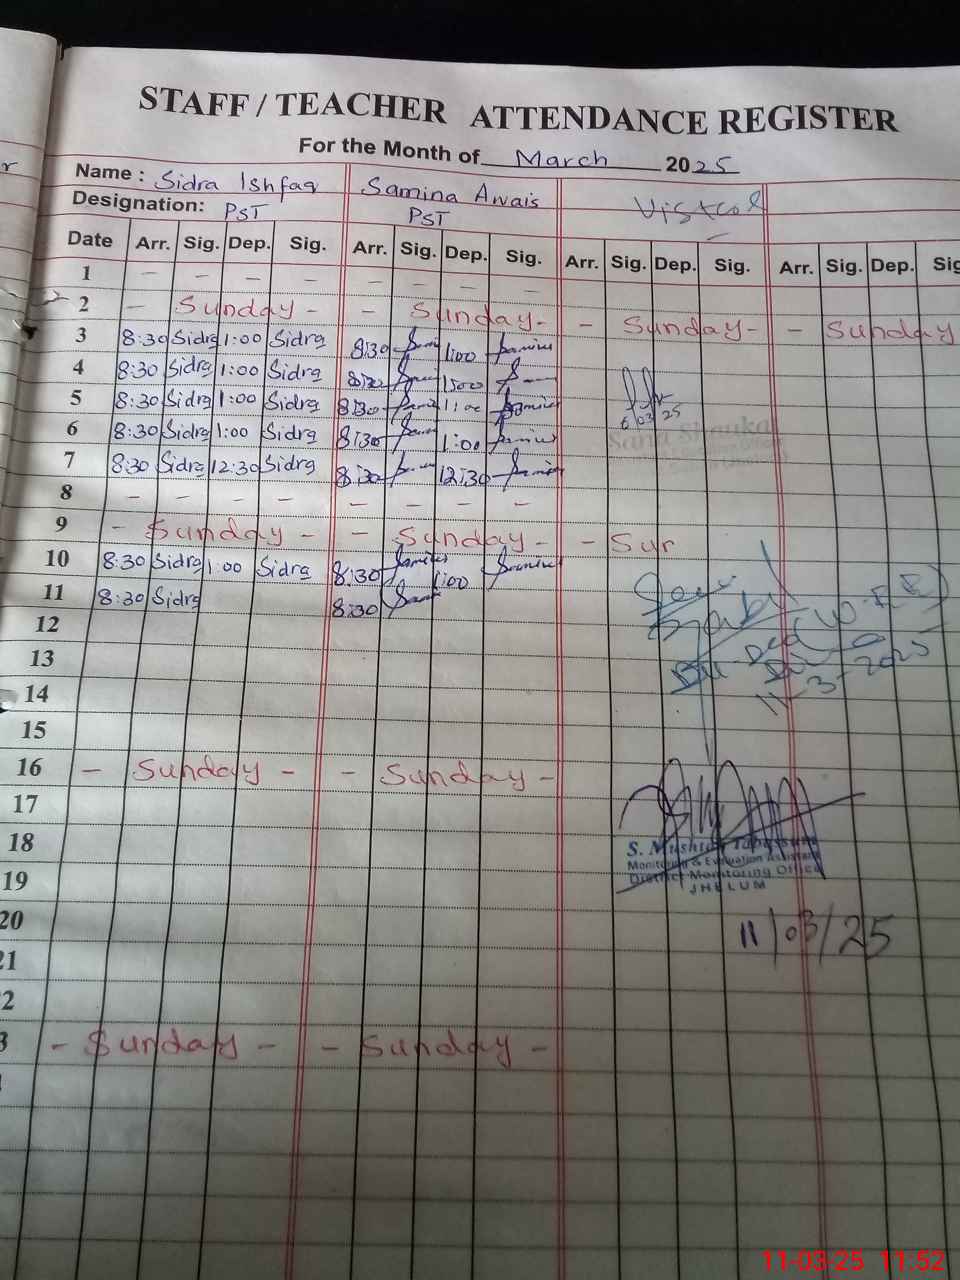 STAFF / TEACHER ATTENDANCE REGISTER
For the Month of March 2025
Name : Sidra Ishfaq Samina Awais
Designation: PST PST
Date Arr. Sig. Dep. Sig. Arr. Sig. Dep. Sig. Arr. Sig. Dep. Sig. Arr. Sig. Dep. Sig
1 - - - - - - - -
2 - Sunday - - Sunday - - Sunday - - Sunday
3 8:30 Sidra 1:00 Sidra 8:30 1:00 Samina
4 8:30 Sidra 1:00 Sidra 8:30 1:00
5 8:30 Sidra 1:00 Sidra 8:30 1:00 Samina
6 8:30 Sidra 1:00 Sidra 8:30 1:00 Samina
6 03 25
7 8:30 Sidra 12:30 Sidra 8:30 12:30 Samina
8 - - - - - - - -
9 - Sunday - - Sunday - - Sun
10 8:30 Sidra 1:00 Sidra 8:30 Samina 1:00 Samina
11 8:30 Sidra 8:30
12
13
11-3-2025
14
15
16 - Sunday - - Sunday -
17
18
S. Mushtaq Tabassum
Monitoring & Evaluation Assistant
District Monitoring Office
JHELUM
19
20
11/03/25
21
2
3 - Sunday - - Sunday -
11-03-25 11:52